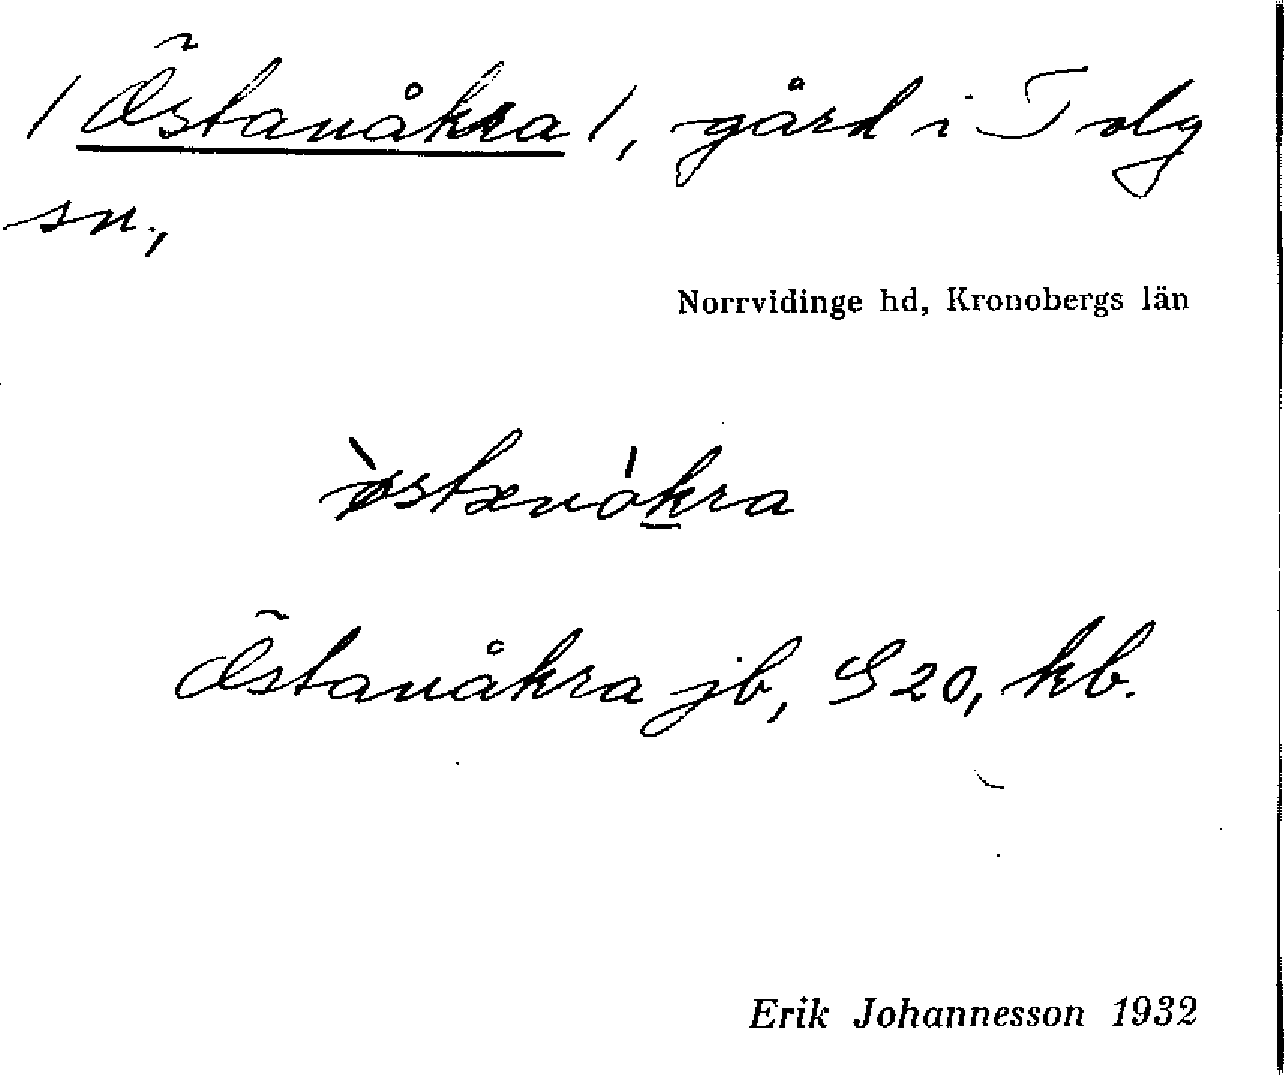 /Östanåkra/, gård i Tolg
sn.,
Norrvidinge hd, Kronobergs län
ø̀stænókra
Östanåkra jb, S 20, kb.
Erik Johannesson 1932